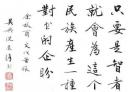 只要是智者
就會為這個
民族產生一種
對書的企盼
余秋雨 文化苦旅